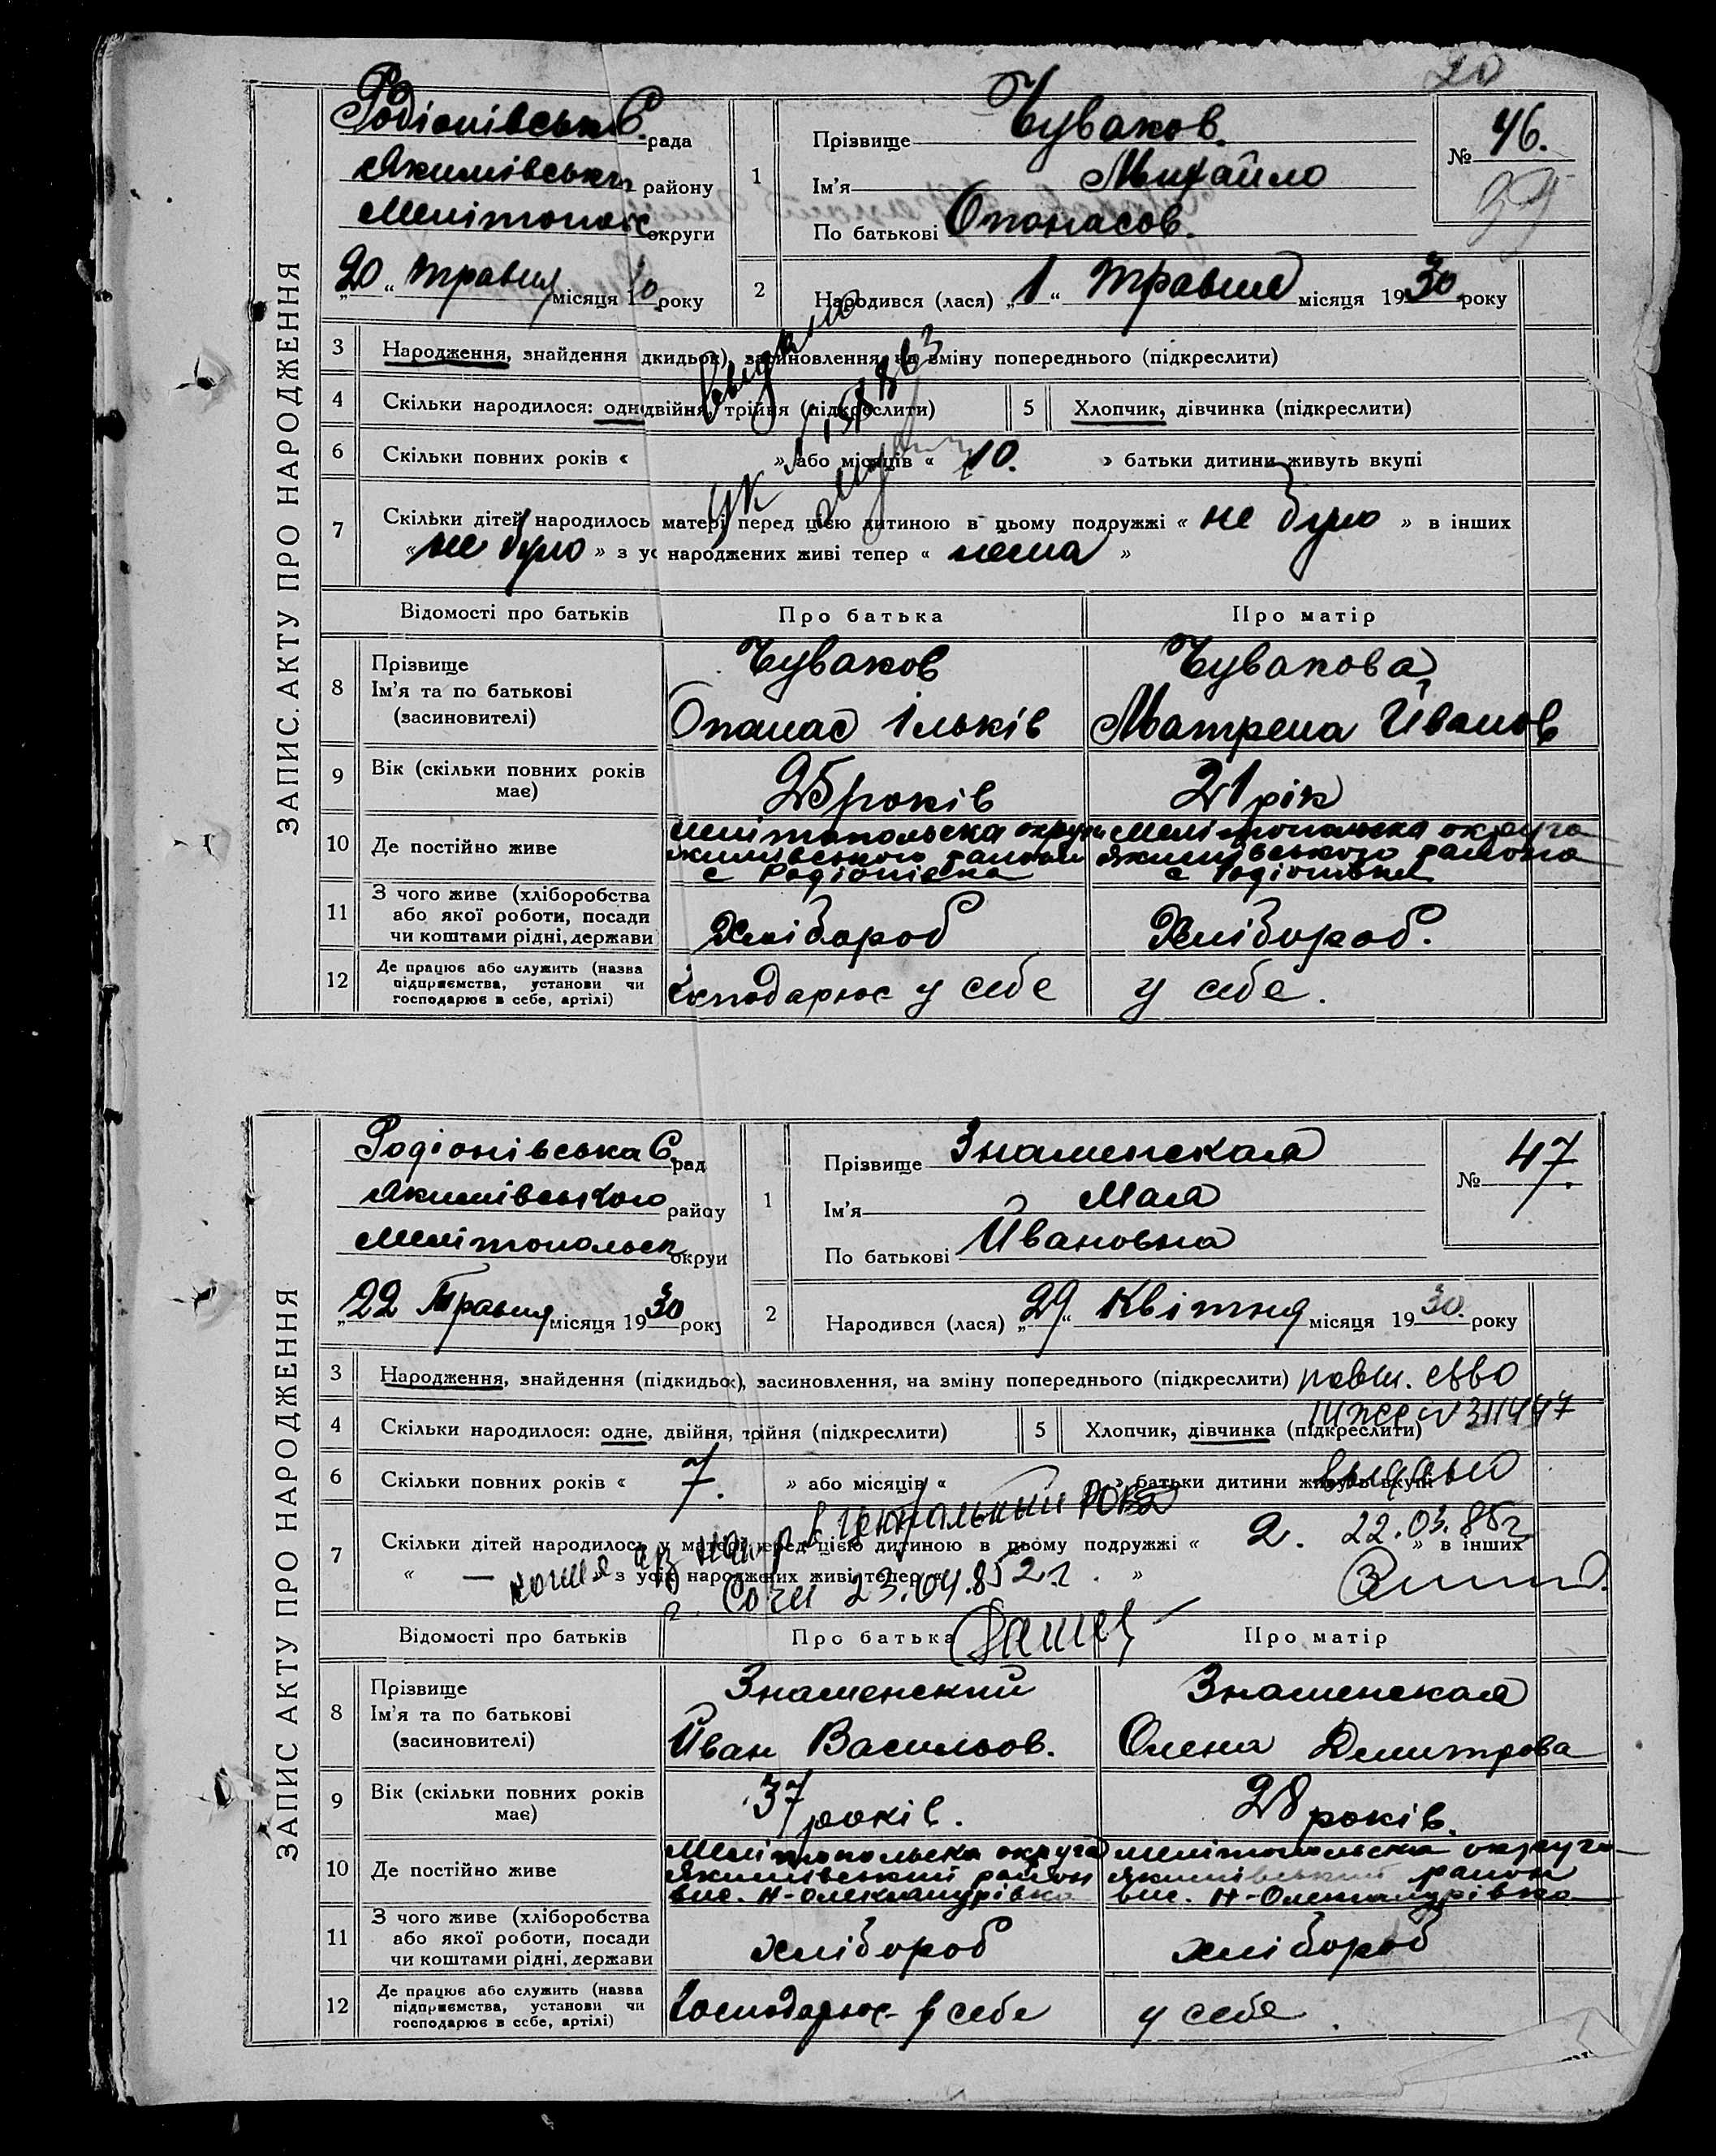 20
ЗАПИС АКТУ ПРО НАРОДЖЕННЯ
Родіонівськ С. рада
Якимівськ району
Мелітопольс округи
„20“ травня місяця 30 року
1
Прізвище Чуваков.
Ім'я Михайло
По батькові Опанасов.
№ 46.
39
2 Народився (лася) „1“ травня місяця 1930 року
3 Народження, знайдення дкидьок), засиновлення, на зміну попереднього (підкреслити)
4 Скільки народилося: одн двійня, трійня (підкреслити)
5 Хлопчик, дівчинка (підкреслити)
6 Скільки повних років « » або місяців « 10. » батьки дитини живуть вкупі
7 Скільки дітей народилось матері перед цією дитиною в цьому подружжі « не було » в інших
« не було » з ус народжених живі тепер « нема »
Відомості про батьків Про батька Про матір
8 Прізвище
Ім'я та по батькові
(засиновителі)
Чуваков
Опанас Ільків
Чувакова
Матрена Иванов
9 Вік (скільки повних років має) 25 років 21 рік
10 Де постійно живе
Мелітопольска округи
Якимівського району
с Родіонівка
Мелітопольска округа
Якимівського района
с Родіонівка
11 З чого живе (хліборобства
або якої роботи, посади
чи коштами рідні, держави
Хлібороб Хлібороб.
12 Де працює або служить (назва
підприємства, установи чи
господарює в себе, артілі)
Господарює у себе у себе.
ЗАПИС АКТУ ПРО НАРОДЖЕННЯ
Родіонівська С. рад
Якимівського райоу
Мелітопольськ окруи
„22 Травня місяця 1930 року
1
Прізвище Знаменская
Ім'я Мая
По батькові Ивановна
№ 47.
2 Народився (лася) „29“ Квітня місяця 1930. року
3 Народження, знайдення (підкидьок), засиновлення, на зміну попереднього (підкреслити) повт. св-во
4 Скільки народилося: одне, двійня, трійня (підкреслити)
5 Хлопчик, дівчинка (підкреслити)
№ 311447
6 Скільки повних років « 7. » або місяців « » батьки дитини живуть вкупі
7 Скільки дітей народилось у матері перед цією дитиною в цьому подружжі « 2. » в інших
22.03.85г
« — » з усіх народжених живі тепер « 2. »
копия
г. Сочи 23.04.85 г.
Відомості про батьків Про батька Про матір
8 Прізвище
Ім'я та по батькові
(засиновителі)
Знаменский
Иван Васильов.
Знаменская
Олена Дмитрова
9 Вік (скільки повних років має) 37 років. 28 років.
10 Де постійно живе
Мелітопольска округа
Якимівський район
вис. Н-Олександрівка
Мелітопольска округа
Якимівський район
вис. Н-Олександрівка
11 З чого живе (хліборобства
або якої роботи, посади
чи коштами рідні, держави
хлібороб хлібороб
12 Де працює або служить (назва
підприємства, установи чи
господарює в себе, артілі)
Господарює у себе у себе.